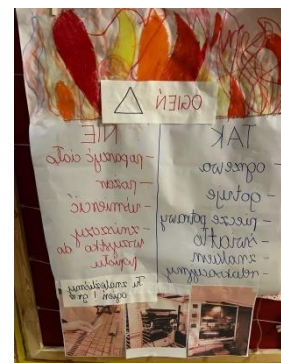 OGIEŃ
TAK
- ogrzewa
- gotuje
- piecze potrawy
- światło
- znakiem
- relaksacyjny
NIE
- poparzyć ciało
- pożar
- uśmiercić
- zniszczy
wszystko do
popiołu
Tu znaleźliśmy
ogień i